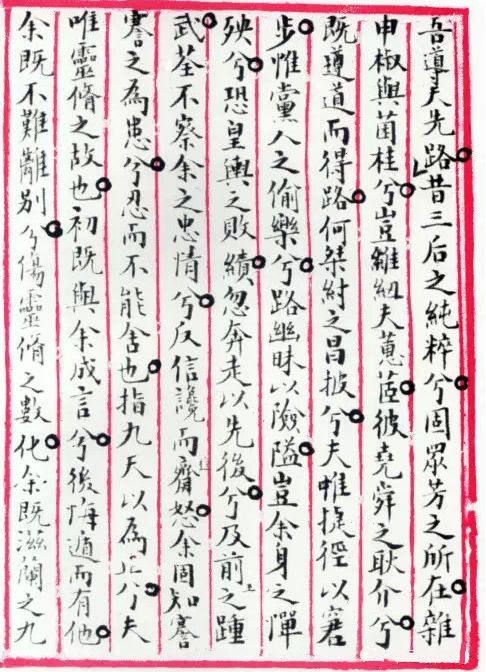 吾導夫先路昔三后之純粹兮固眾芳之所在雜
申椒與菌桂兮豈雖紐夫蕙茝彼堯舜之耿介兮
既遵道而得路何桀紂之昌披兮夫惟捷徑以窘
步惟黨人之偷樂兮路幽昧以險隘豈余身之憚
殃兮恐皇輿之敗績忽奔走以先後兮及前王之踵
武荃不察余之忠情兮反信讒而齌怒余固知謇
謇之為患兮忍而不能舍也指九天以為正兮夫
唯靈脩之故也初既與余成言兮後悔遁而有他
余既不難離別兮傷靈脩之數化余既滋蘭之九